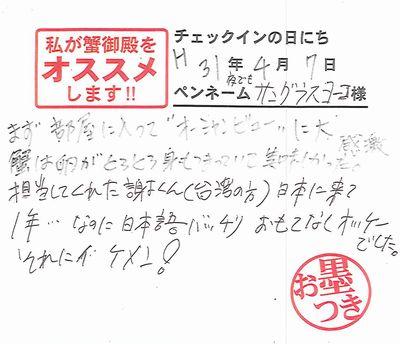 私が蟹御殿を
オススメ
します!!
チェックインの日にち
H 31年 4月 7日
夜でも
ペンネーム サングラスヨーコ様
まず 部屋に入って“オーシャンビュー”に大
感激
蟹は卵がとろとろ身もつまっていて美味しかった。
担当してくれた謝くん(台湾の方)日本に来て
1年… なのに日本語バッチリ おもてなしオッケー
でした。
それにイケメン!
お墨つき